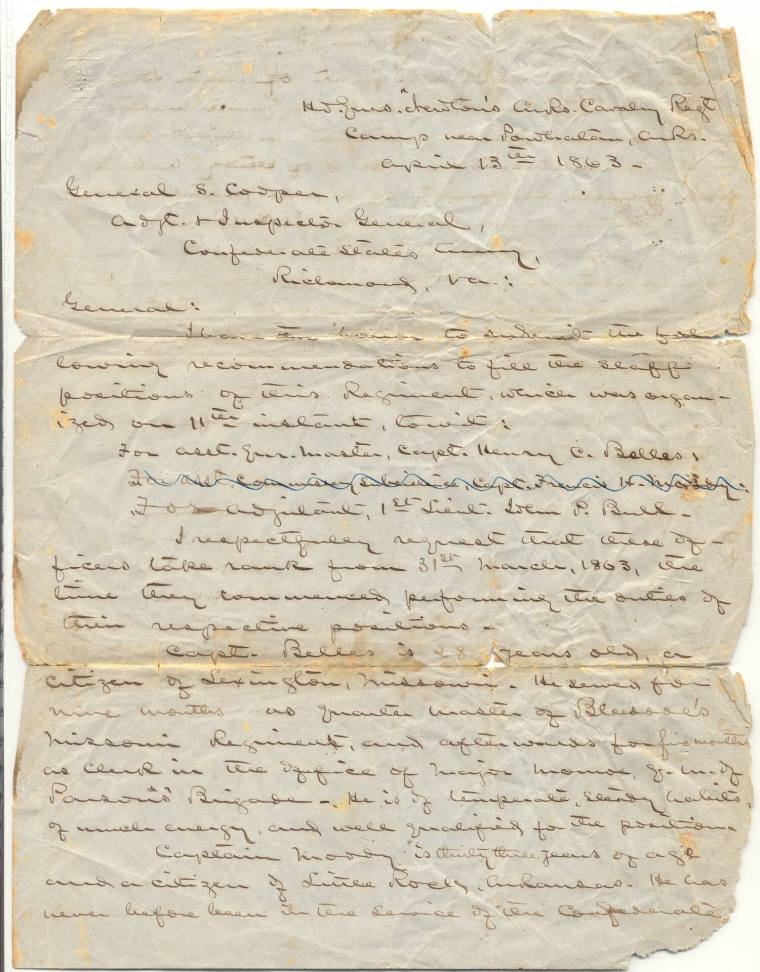 Hd. Qurs. Newton's Arks. Cavalry Regt
Camp near Powhatan, Arks.
April 13th 1863 -
General S. Cooper,
Adjt. & Inspector General,
Confederate States Army,
Richmond, Va.:
General:
I have the honor to submit the fol-
lowing recommendations to fill the staff
positions of this Regiment, which was organ-
ized on 11th instant, towit:
For asst. Qur. Master, Capt. Henry C. Belles;
For asst. Commissary Subsistence, Capt. Francis H. Moody.
For adjutant, 1st Lieut. John P. Bull -
I respectfully request that these of-
ficers take rank from 31st March, 1863, the
time they commenced performing the duties of
their respective positions -
Capt. Belles is 28 years old, a
citizen of Lexington, Missouri. He served for
nine months as quarter master of Bledsoe's
Missouri Regiment, and afterwards for five months
as clerk in the office of Major Monroe, Q. M. of
Parsons' Brigade -. He is of temperate, steady habits,
of much energy, and well qualified for the position.
Captain Moody is thirty three years of age
and a citizen of Little Rock, Arkansas. He has
never before been in the service of the Confederate